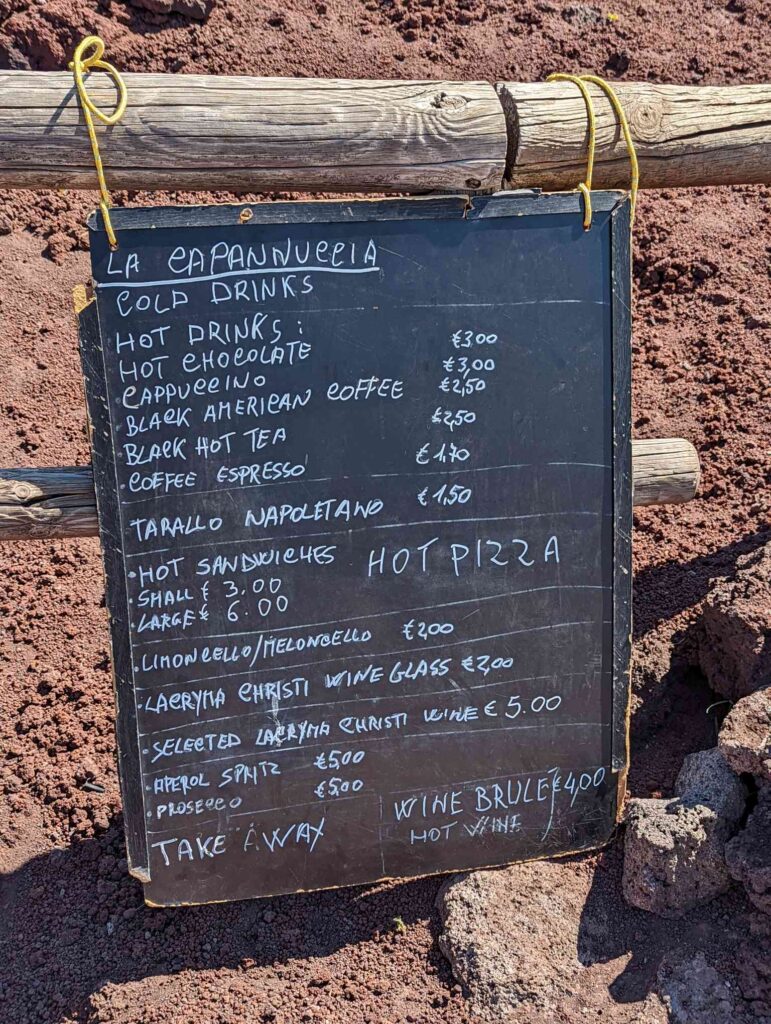 LA CAPANNUCCIA
COLD DRINKS
HOT DRINKS:
HOT CHOCOLATE €3.00
CAPPUCCINO €3,00
BLACK AMERICAN COFFEE €2,50
BLACK HOT TEA €2,50
COFFEE ESPRESSO €1,70
TARALLO NAPOLETANO €1,50
HOT SANDWICHES HOT PIZZA
SMALL € 3.00
LARGE € 6.00
LIMONCELLO/MELONCELLO €2,00
LACRYMA CHRISTI WINE GLASS €2,00
SELECTED LACRYMA CHRISTI WINE € 5.00
APEROL SPRITZ €5,00
PROSECCO €5,00
TAKE AWAY WINE BRULE' €4,00
HOT WINE